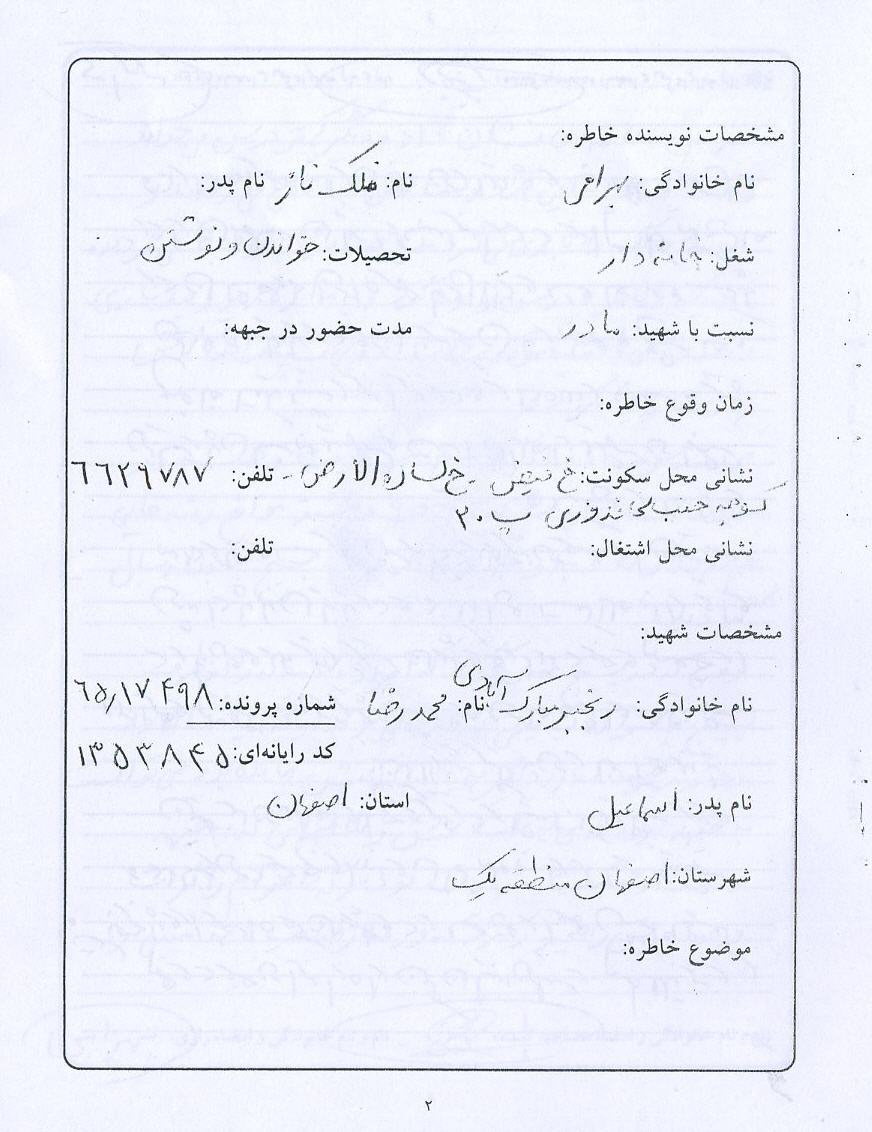 مشخصات نویسنده خاطره:
نام خانوادگی: بهرامی نام: فلک ناز نام پدر:
شغل: خانه دار تحصیلات: خواندن و نوشتن
نسبت با شهید: مادر مدت حضور در جبهه:
زمان وقوع خاطره:
نشانی محل سکونت: خ فیض - خ لسان الارض - تلفن: ٦٦٢٩٧٨٧
کوچه پ ۳۰
نشانی محل اشتغال: تلفن:
مشخصات شهید:
نام خانوادگی: رنجبر مبارک آبادی نام: محمدرضا شماره پرونده: ٦٥/١٧۴٩٨
کد رایانه‌ای: ١٣٥٣٨۴٥
نام پدر: اسماعیل استان: اصفهان
شهرستان: اصفهان منطقه یک
موضوع خاطره:
۲